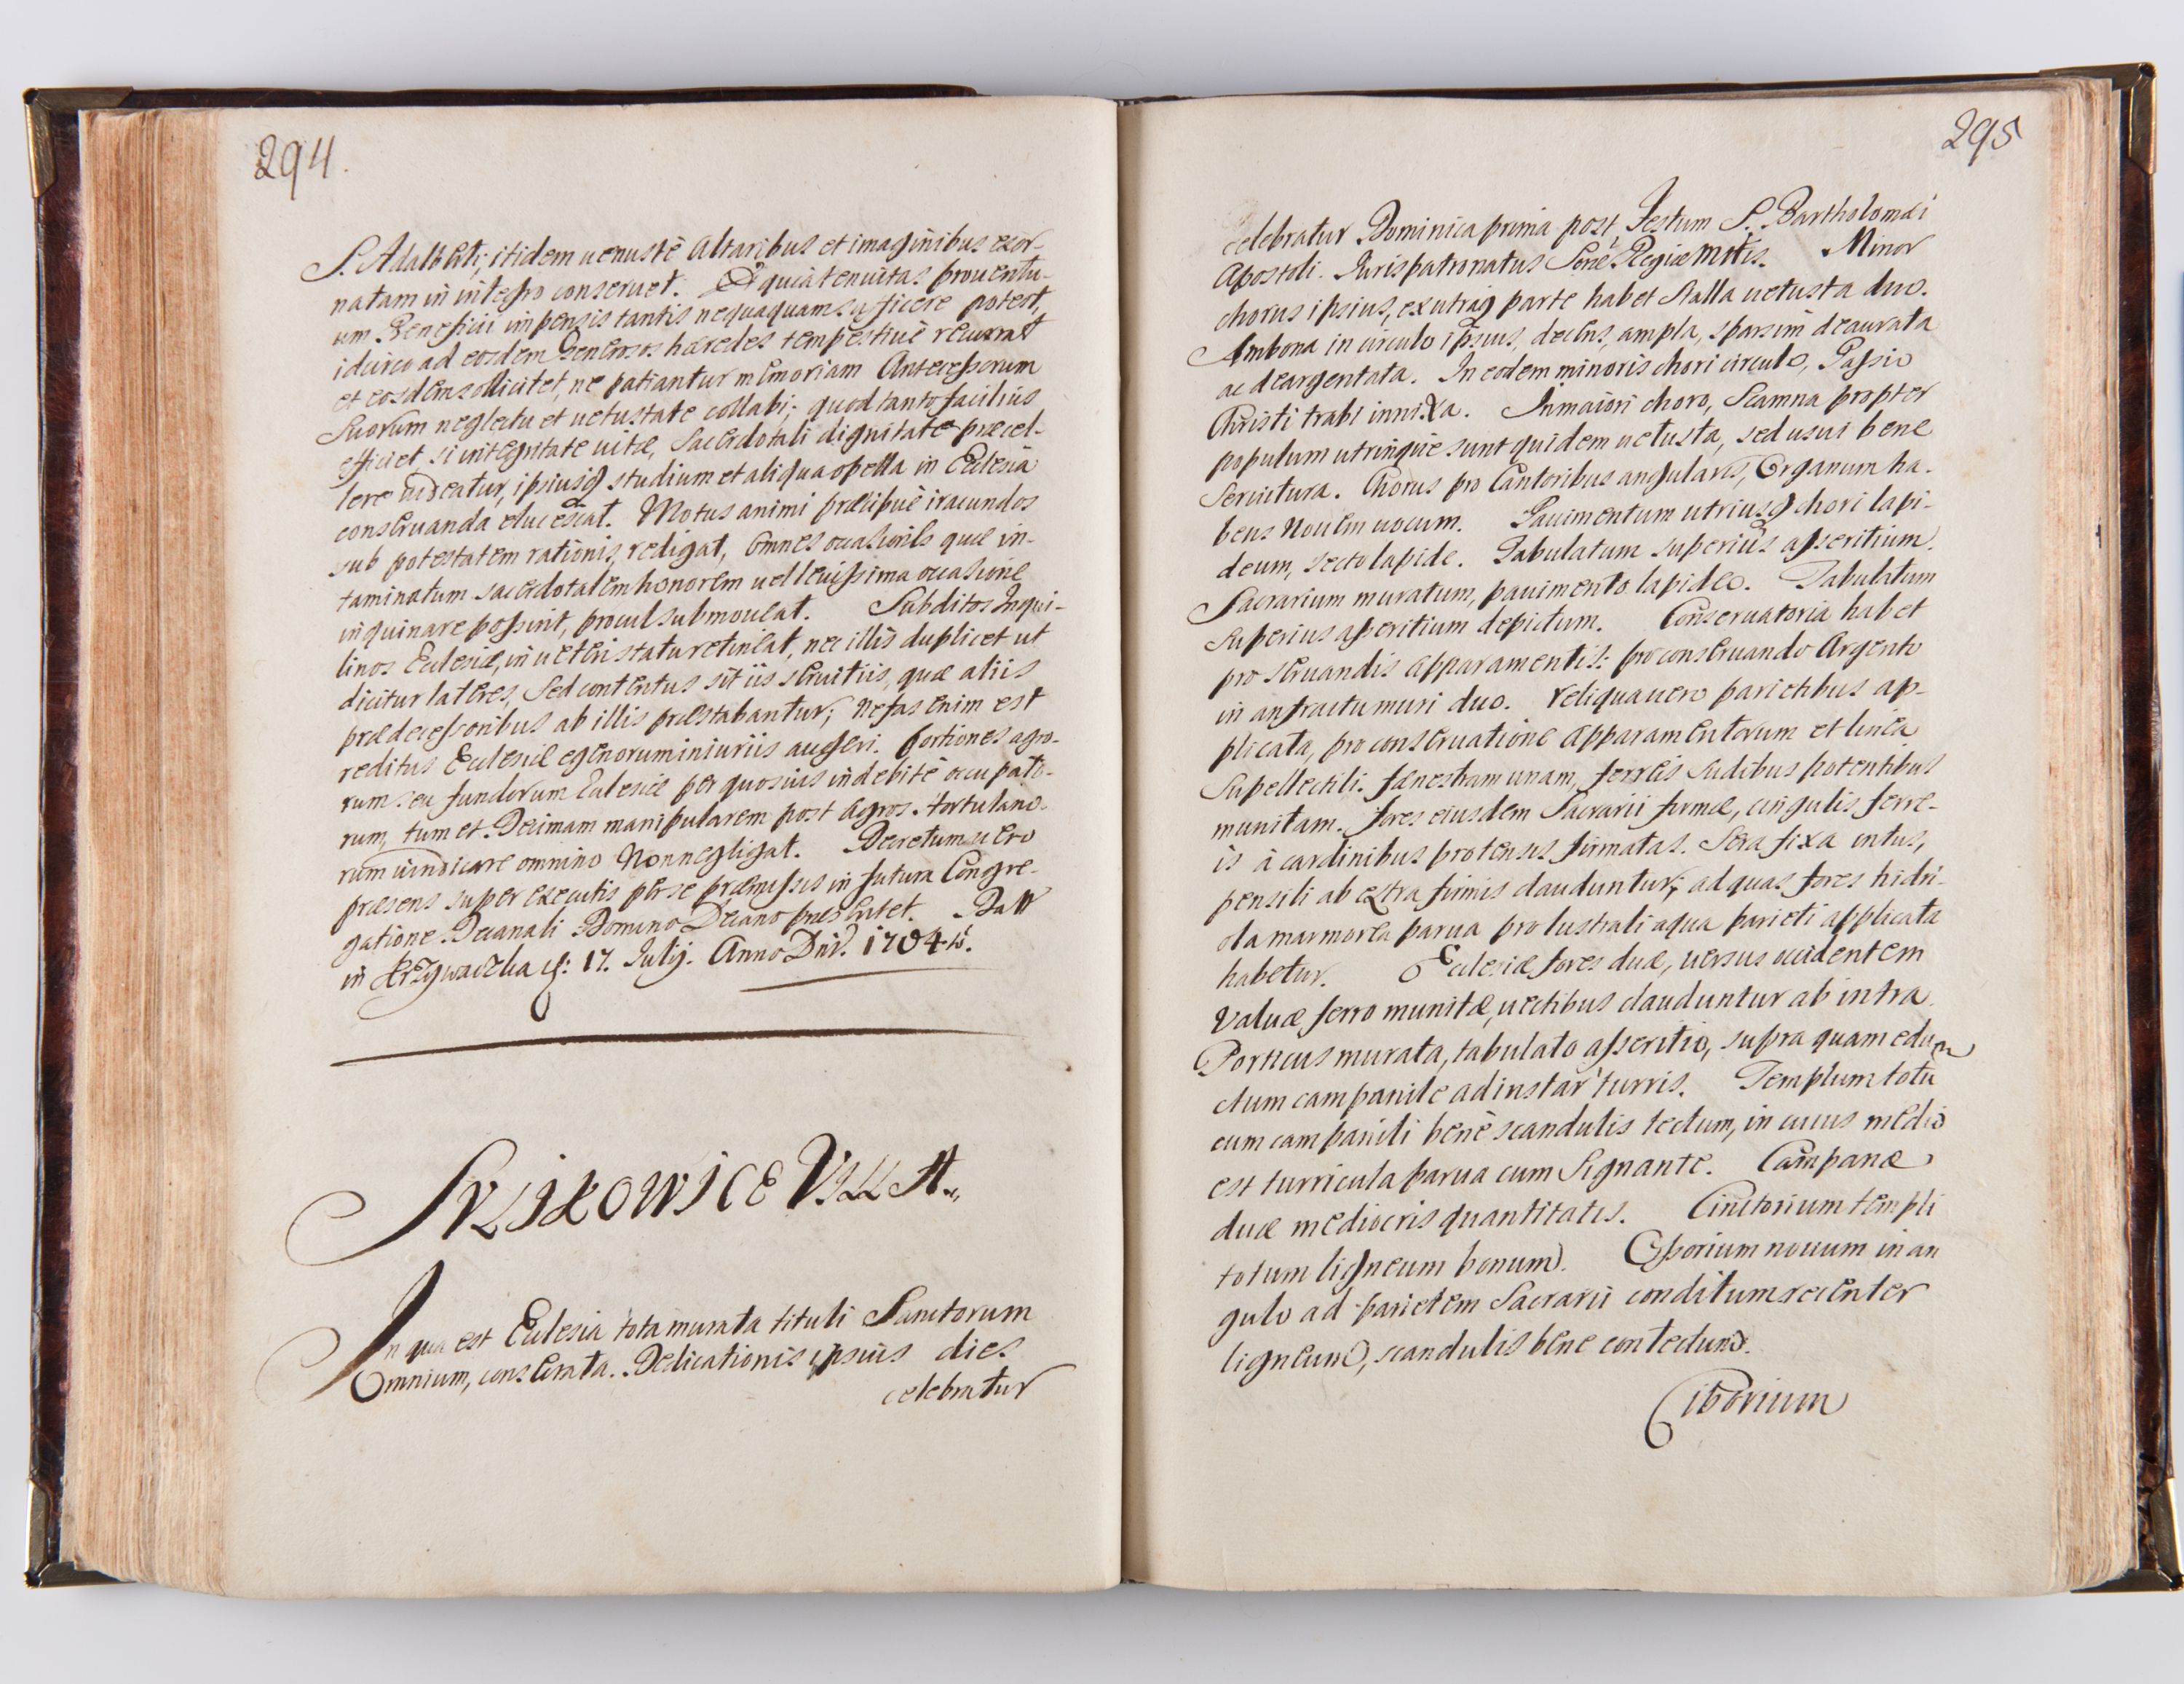 294.
S. Adalberti, itidem uenustè Altaribus et imaginibus exor-
natam in integro conseruet. Et quia tenuitas prouentu-
um Beneficii impensis tantis nequaquam sufficere potest,
idcirco ad eosdem Generosos hæredes tempestiuè recurrat
et eosdem sollicitet, ne patiantur memoriam Antecessorum
Suorum neglectu et uetustate collabi; quod tanto facilius
efficiet, si integritate uitæ, Sacerdotali dignitate præcel-
lere uideatur, ipsiusq studium et aliqua opella in Ecclesia
conseruanda elucescat. Motus animi præcipuè iracundos
sub potestatem rationis redigat, omnes occasiones quæ in-
taminatum sacerdotalem honorem uel leuissima occasione
inquinare possint, procul submoueat. Subditos Inqui-
linos Ecclesiæ, in ueteri statu retineat, nec illis duplicet ut
dicitur lateres, Sed contentus sit iis seruitiis, quæ aliis
prædecessoribus ab illis præstabantur; nefas enim est
reditus Ecclesiæ egenorum iniuriis augeri. Portiones agro-
rum seu fundorum Ecclesiæ per quosuis indebitè occupato-
rum, tum et Decimam manipularem post Agros hortulano-
rum uindicare omnino Non negligat. Decretum uero
præsens super executis per se præmissis in futura Congre-
gatione Decanali Domino Decano præsentet. Datt
in Krzywaczka d: 17. Julij. Anno Dni. 1704 to.
SVLJKOWJCE VJLLA.
In qua est Ecclesia tota murata tituli Sanctorum
Omnium, consecrata. Dedicationis ipsius dies
celebratur
295
celebratur Dominica prima post Festum S. Bartholomæi
Apostoli. Iurispatronatus Sere Regiæ Mttis. Minor
chorus ipsius, ex utraq parte habet Stalla uetusta duo.
Ambona in circulo ipsius, decens, ampla, sparsim deaurata
ac deargentata. In eodem minoris chori circulo, Passio
Christi trabi innixa. In maiori choro, Scamna propter
populum utrinque sunt quidem uetusta, sed usui bene
Seruitura. Chorus pro Cantoribus angularis, Organum ha-
bens Nouem uocum. Pauimentum utriusq chori lapi-
deum, secto lapide. Tabulatum superius asseritium.
Sacrarium muratum, pauimento lapideo. Tabulatum
Superius asseritium depictum. Conseruatoria habet
pro seruandis apparamentis: pro conseruando Argento
in anfractu muri duo. reliqua uero parietibus ap-
plicata, pro conseruatione Apparamentorum et linea
Supellectili. Fænestram unam, ferreis sudibus potentibus
munitam. Fores eiusdem Sacrarii firmæ, cingulis ferre-
is à cardinibus protensis firmatas. Sera fixa intus,
pensili ab extra firmis clauduntur; ad quas fores hidri-
ola marmorea parua pro lustrali aqua parieti applicata
habetur. Ecclesiæ fores duæ, uersus occidentem
Valuæ ferro munitæ, uectibus clauduntur ab intra.
Porticus murata, tabulato asseritio, supra quam edu-
ctum campanile ad instar turris. Templum totu
cum campanili benè scandulis tectum, in cuius medio
est turricula parua cum Signante. Campanæ
duæ mediocris quantitatis. Cimitorium templi
totum ligneum bonum. Ossorium nouum in an
gulo ad parietem Sacrarii conditum recenter
ligneum, scandulis bene contectum.
Ciborium